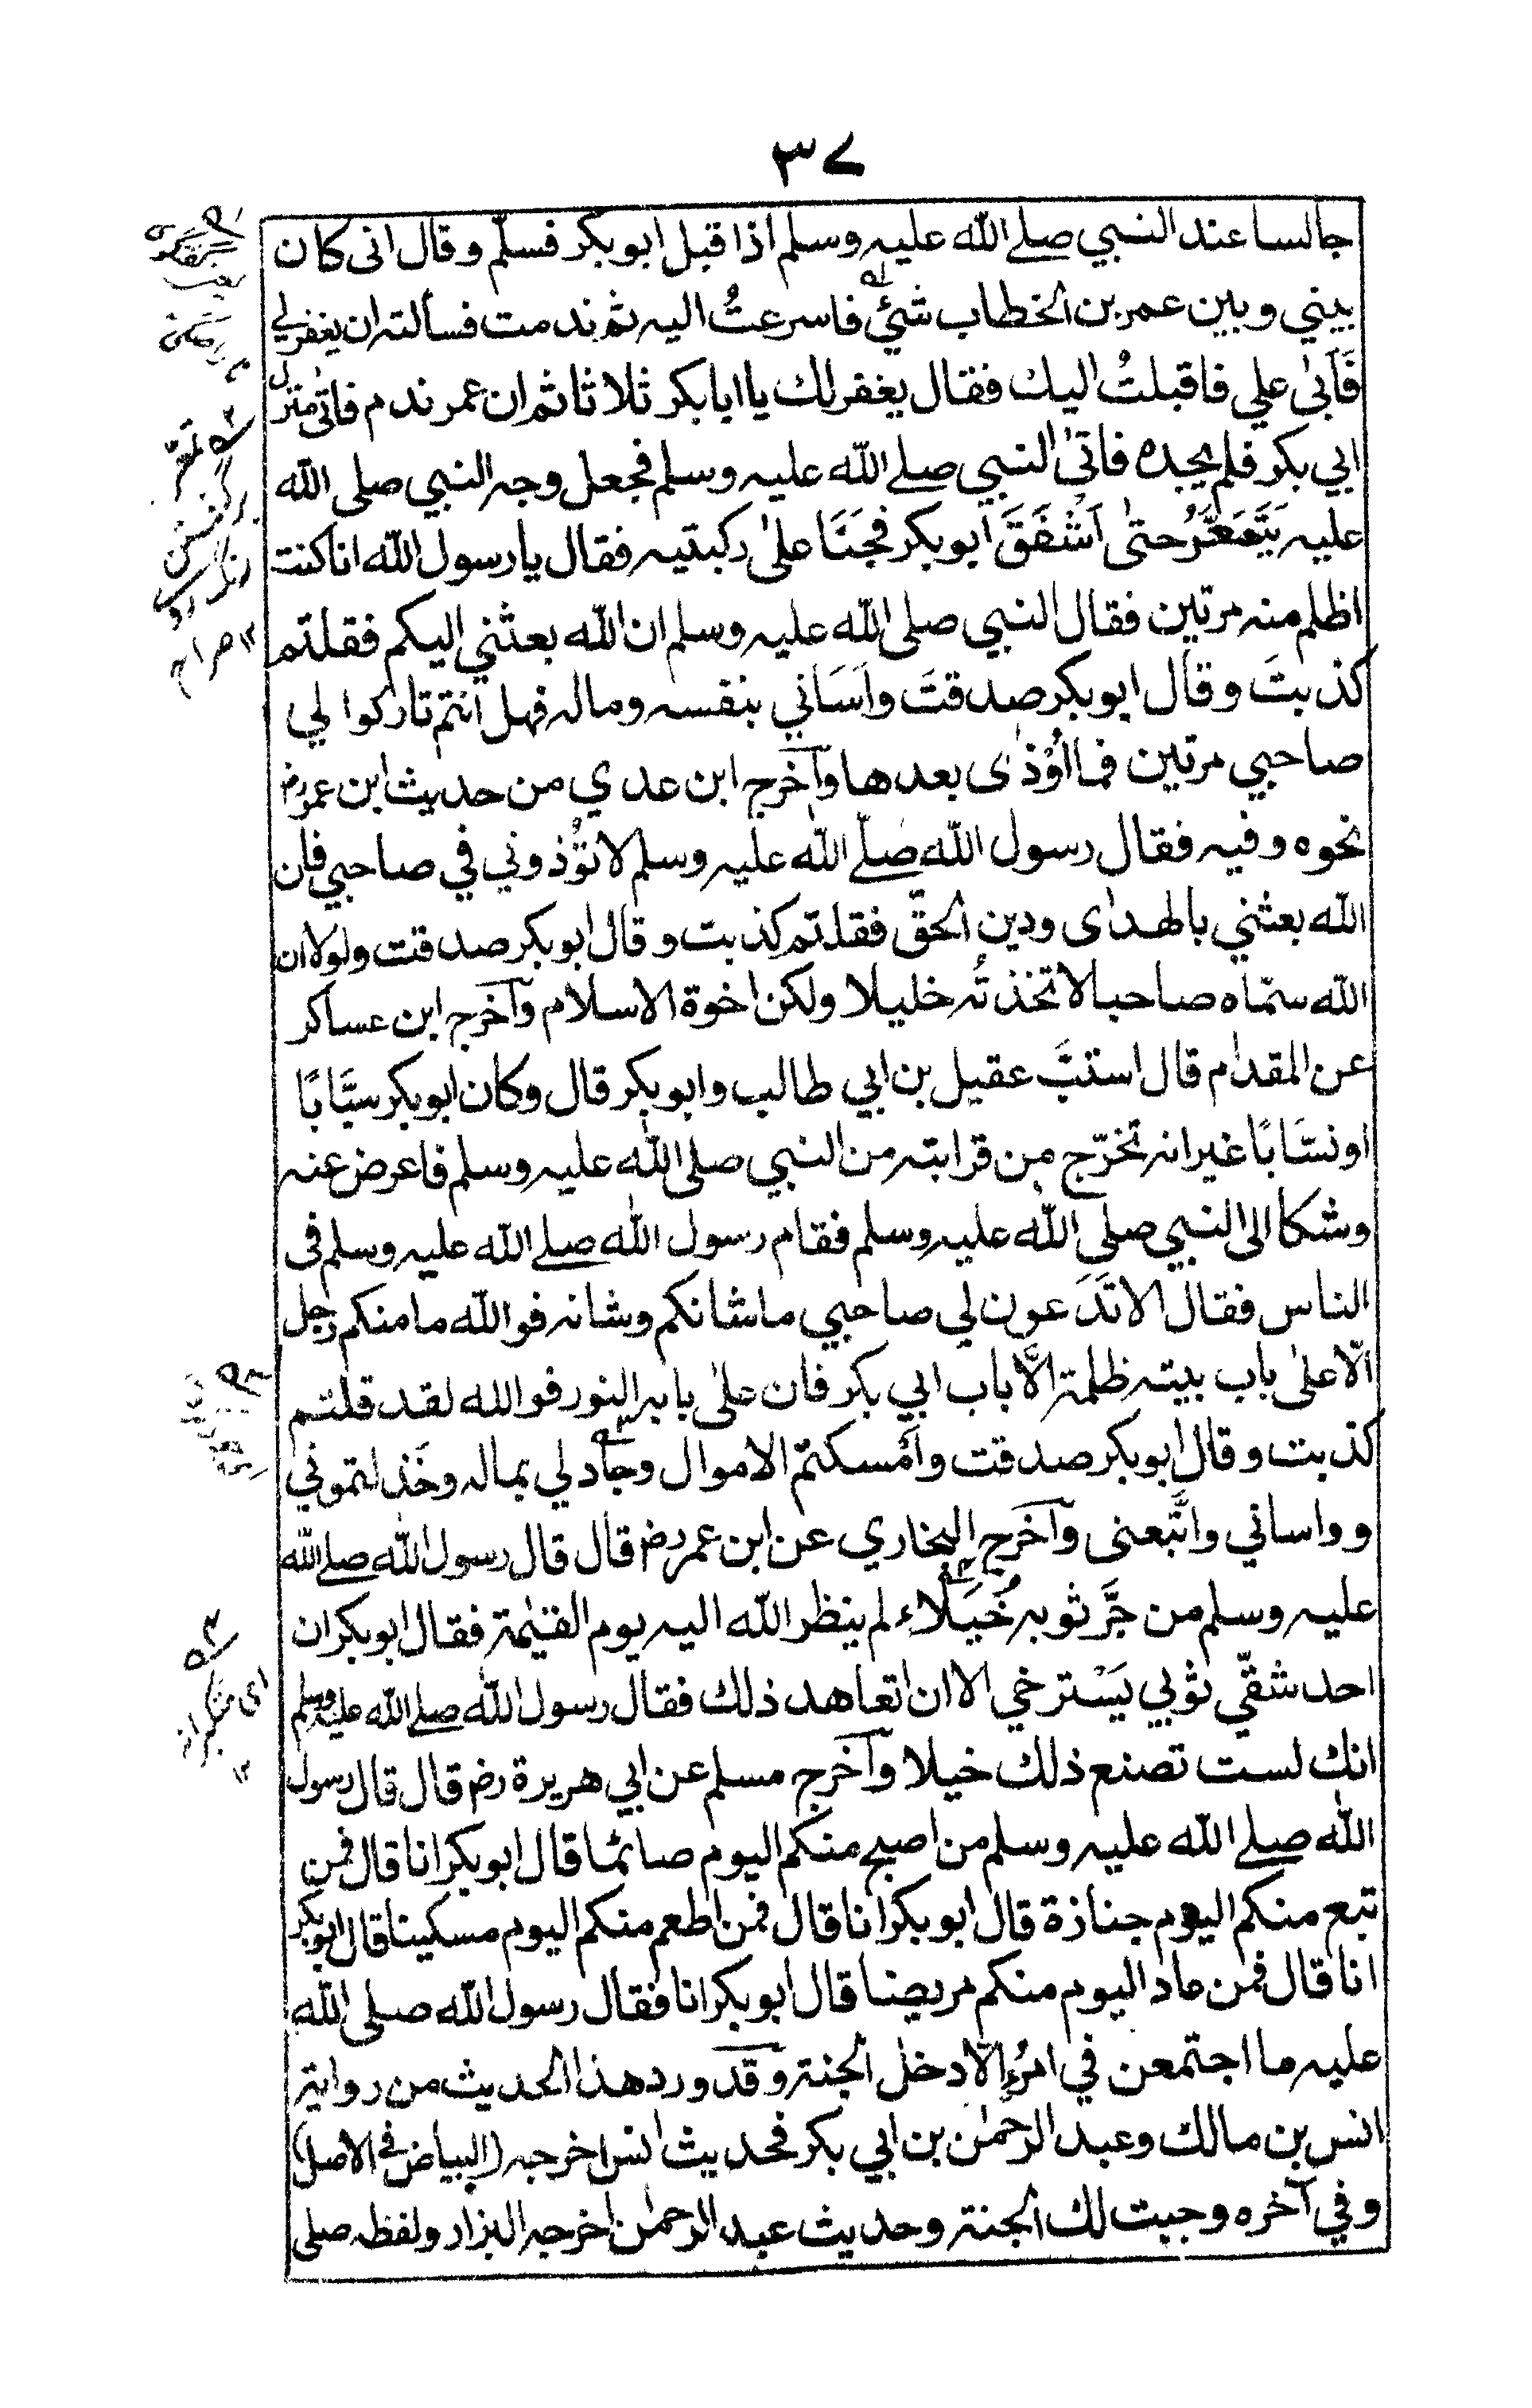 ٣٧
جالسا عند النبي صلے الله عليه وسلم اذا قبل ابو بكر فسلّم وقال انى كان
بيني وبين عمر بن الخطاب شئي فاسرعتُ اليه ثم ندمت فسألته ان يغفر لي
فَأَبیٰ علي فاقبلتُ اليك فقال يغفر لك يا ابا بكر ثلاثا ثم ان عمر ندم فاتیٰ منزل
ابي بكر فلم يجده فاتیٰ النبي صلے الله عليه وسلم فجعل وجه النبي صلى الله
عليه يَتَمَعَّرُ حتیٰ اَشْفَقَ ابو بكر فجَثَا علیٰ ركبتيه فقال يا رسول الله انا كنت
اظلم منه مرتين فقال النبي صلى الله عليه وسلم ان الله بعثني اليكم فقلتم
كذبتَ وقال ابو بكر صدقتَ واَسَاني بنفسه وماله فهل انتم تاركوا لي
صاحبي مرتين فما اُوْذیٰ بعدها وآخرج ابن عدي من حديث ابن عمر رض
نحوه وفيه فقال رسول الله صلّے الله عليه وسلم لا تؤذوني في صاحبي فان
الله بعثني بالهدٰى ودين الحقّ فقلتم كذبت وقال ابو بكر صدقت ولولا ان
الله سمّاه صاحبا لاتخذتُه خليلا ولكن اخوة الاسلام وآخرج ابن عساكر
عن المقدام قال استبَّ عقيل بن ابي طالب وابو بكر قال وكان ابو بكر سبَّابًا
او نسَّابًا غير انه تخرّج من قرابته من النبي صلى الله عليه وسلم فاعرض عنه
وشكا الى النبي صلى الله عليه وسلم فقام رسول الله صلے الله عليه وسلم فى
الناس فقال الا تَدَعون لي صاحبي ما شانكم وشانه فو الله ما منكم رجل
الّا علیٰ باب بيته ظلمة الَّا باب ابي بكر فان علیٰ بابه النور فو الله لقد قلتم
كذبت وقال ابو بكر صدقت وَاَمْسكتم الاموال وجاد لي بماله وخَذلتموني
وواساني واتَّبعنى وآخرج البخاري عن ابن عمر رض قال قال رسول الله صلے الله
عليه وسلم من جَرَّ ثوبه خُيَلَاء لم ينظر الله اليه يوم القيٰمة فقال ابو بكر ان
احد شقّي ثوبي يَسْترخي الا ان اتعاهد ذلك فقال رسول الله صلے الله عليه وسلم
انك لست تصنع ذلك خيلا وآخرج مسلم عن ابي هريرة رض قال قال رسول
الله صلے الله عليه وسلم من اصبح منكم اليوم صائما قال ابو بكر انا قال فمن
تبع منكم اليوم جنازة قال ابو بكر انا قال فمن اطعم منكم اليوم مسكينا قال ابو بكر
انا قال فمن عاد اليوم منكم مريضا قال ابو بكر انا فقال رسول الله صلى الله
عليه ما اجتمعن في امْرُءٍ الّا دخل الجنة وقَد ورد هذا الحديث من رواية
انس بن مالك وعبد الرحمٰن بن ابي بكر فحديث انس اخرجه (البياض فى الاصل)
وفي آخره وجبت لك الجنة وحديث عبد الرحمٰن اخرجه البزار ولفظه صلى
تمعّر
برگشتن
رنگ روے
١٢ صراح
اى متكبرانه
١٢